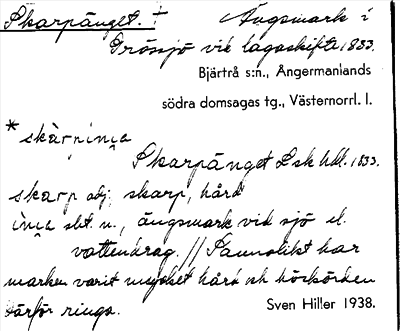 Skarpänget. † Ängsmark i
Grössjö vid lagaskifte 1833.
Bjärtrå s:n., Ångermanlands
södra domsagas tg., Västernorrl. l.
* skàrpiŋa
Skarpänget Lsk hdl. 1833.
skarp adj. skarp, hård
iŋa sbt. n., ängsmark vid sjö el.
vattendrag. // Sannolikt har
marken varit mycket hård och höskörden
därför ringa. Sven Hiller 1938.